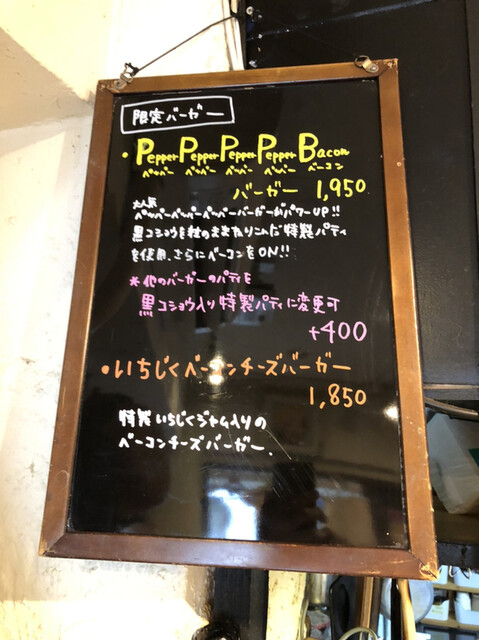 限定バーガー
・Pepper Pepper Pepper Pepper Bacon
ペッパー ペッパー ペッパー ペッパー ベーコン
バーガー 1,950
大人気
ペッパーペッパーペッパーバーガーがパワーUP!!
黒コショウを粒のままねりこんだ特製パティ
を使用、さらにベーコンをON!!
*他のバーガーのパティを
黒コショウ入り特製パティに変更可
+400
・いちじくベーコンチーズバーガー
1,850
特製いちじくジャム入りの
ベーコンチーズバーガー、